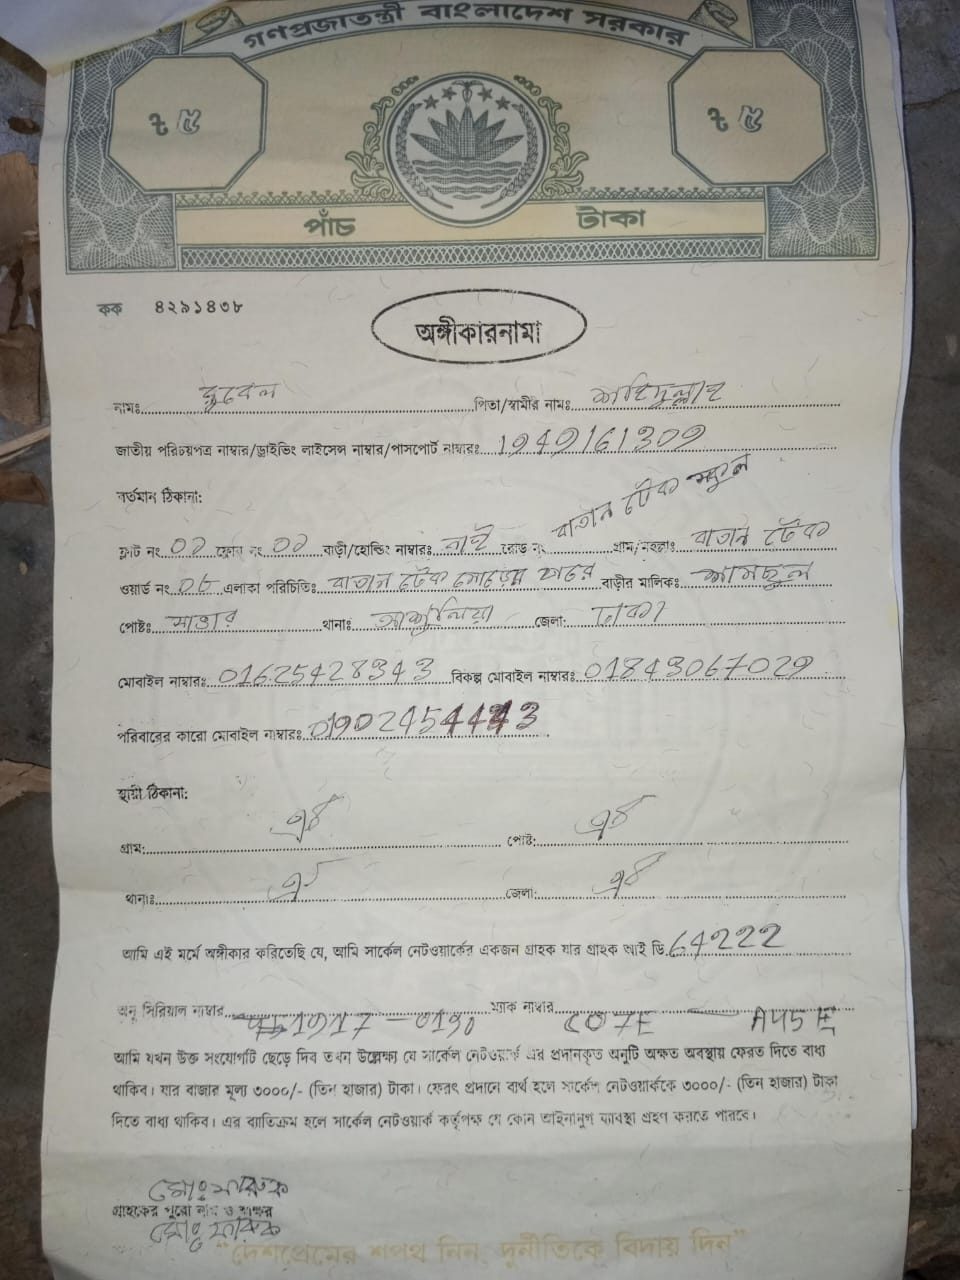 গণপ্রজাতন্ত্রী বাংলাদেশ সরকার
৳ ৫ ৳ ৫
পাঁচ টাকা
কক ৪২৯১৪৩৮
অঙ্গীকারনামা
নামঃ রুবেল পিতা/স্বামীর নামঃ শহিদুল্লাহ
জাতীয় পরিচয়পত্র নাম্বার/ড্রাইভিং লাইসেন্স নাম্বার/পাসপোর্ট নাম্বারঃ
বর্তমান ঠিকানা:
ফ্লাট নং ফ্লোর নং বাড়ী/হোল্ডিং নাম্বারঃ নাই রোড নং গ্রাম/মহল্লাঃ
ওয়ার্ড নং 08 এলাকা পরিচিতিঃ বাড়ীর মালিকঃ
পোষ্টঃ সাভার থানাঃ আশুলিয়া জেলা: ঢাকা
মোবাইল নাম্বারঃ 01625428343 বিকল্প মোবাইল নাম্বারঃ 01843067029
পরিবারের কারো মোবাইল নাম্বারঃ
স্থায়ী ঠিকানা:
গ্রাম: ঐ পোষ্ট: ঐ
থানাঃ ঐ জেলা: ঐ
আমি এই মর্মে অঙ্গীকার করিতেছি যে, আমি সার্কেল নেটওয়ার্কের একজন গ্রাহক যার গ্রাহক আই ডি 64222
অনু সিরিয়াল নাম্বার ম্যাক নাম্বার C07E — A45E
আমি যখন উক্ত সংযোগটি ছেড়ে দিব তখন উল্লেক্ষ্য যে সার্কেল নেটওয়ার্ক এর প্রদানকৃত অনুটি অক্ষত অবস্থায় ফেরত দিতে বাধ্য
থাকিব। যার বাজার মূল্য ৩০০০/- (তিন হাজার) টাকা। ফেরৎ প্রদানে ব্যর্থ হলে সার্কেল নেটওয়ার্ককে ৩০০০/- (তিন হাজার) টাকা
দিতে বাধ্য থাকিব। এর ব্যতিক্রম হলে সার্কেল নেটওয়ার্ক কর্তৃপক্ষ যে কোন আইনানুগ ব্যবস্থা গ্রহণ করতে পারবে।
মোঃ ফারুক
গ্রাহকের পুরো নাম ও স্বাক্ষর
মোঃ ফারুক
"দেশপ্রেমের শপথ নিন, দুর্নীতিকে বিদায় দিন"